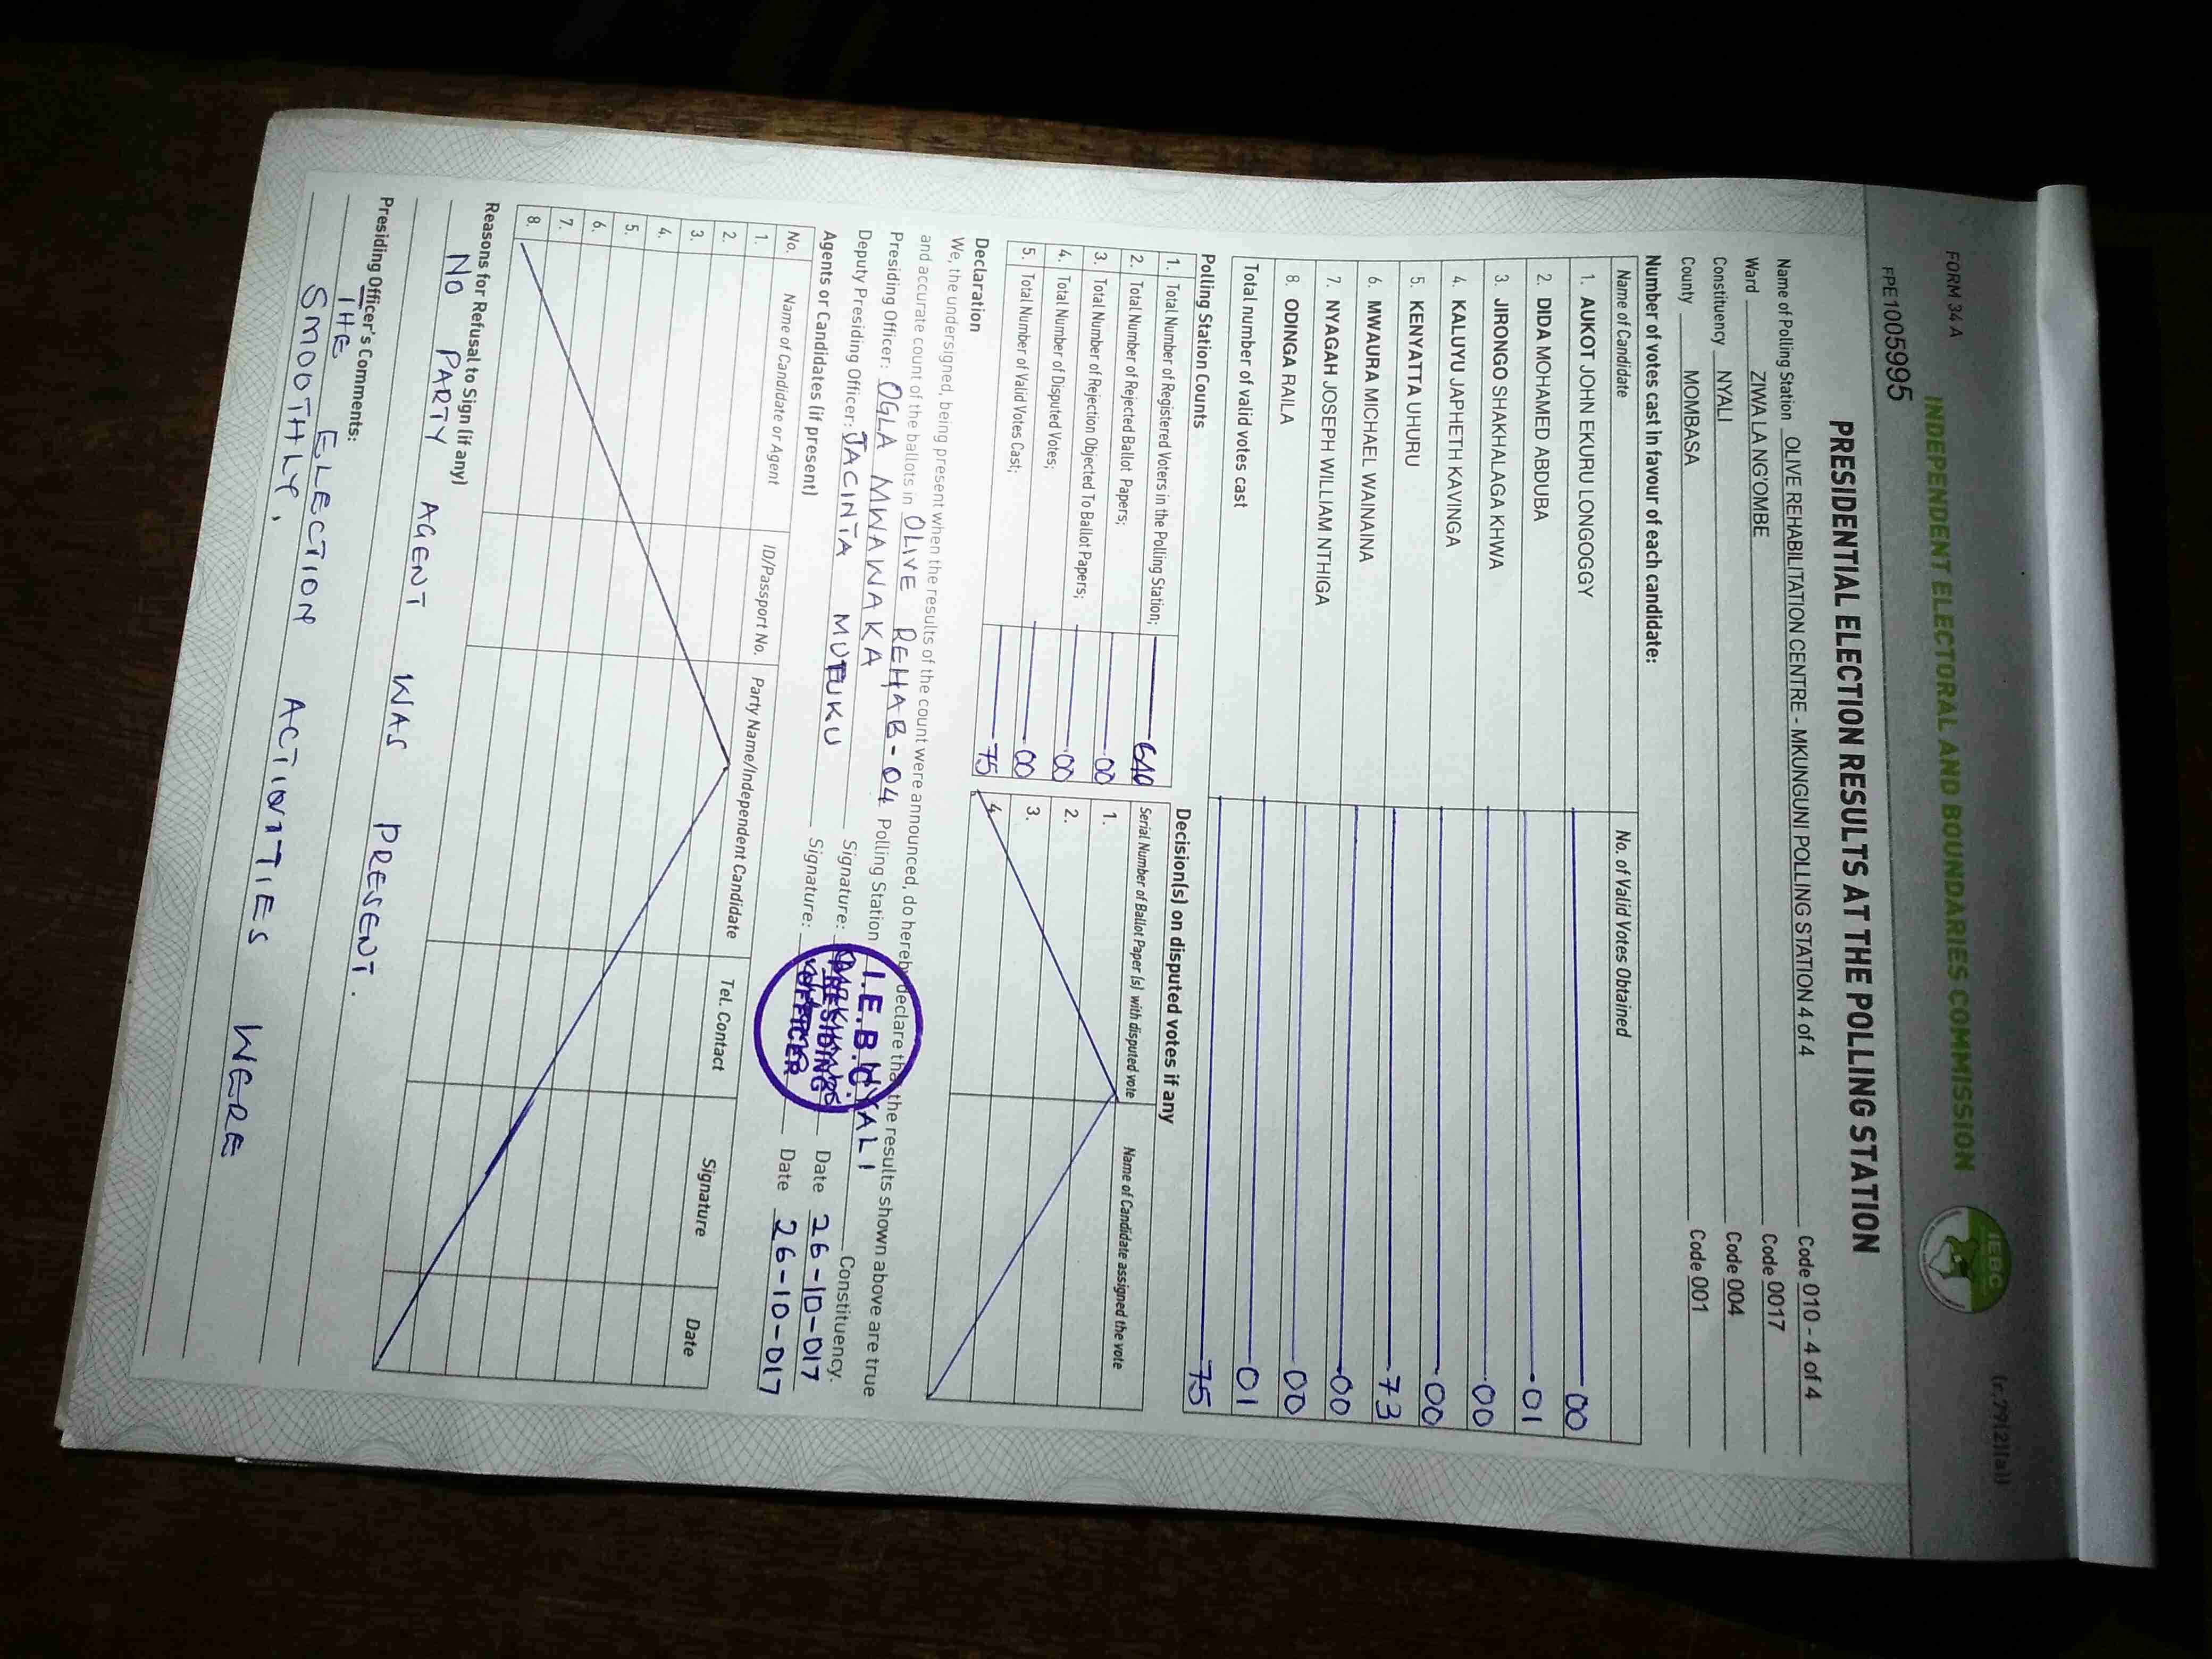 FORM 34 A
(r.79(2)(a))
INDEPENDENT ELECTORAL AND BOUNDARIES COMMISSION
IEBC
FPE1005995
PRESIDENTIAL ELECTION RESULTS AT THE POLLING STATION
Name of Polling Station OLIVE REHABILITATION CENTRE - MKUNGUNI POLLING STATION 4 of 4 Code 010 - 4 of 4
Ward ZIWA LA NG'OMBE Code 0017
Constituency NYALI Code 004
County MOMBASA Code 001
Number of votes cast in favour of each candidate:
Name of Candidate No. of Valid Votes Obtained
1. AUKOT JOHN EKURU LONGOGGY 00
2. DIDA MOHAMED ABDUBA 01
3. JIRONGO SHAKHALAGA KHWA 00
4. KALUYU JAPHETH KAVINGA 00
5. KENYATTA UHURU 73
6. MWAURA MICHAEL WAINAINA 00
7. NYAGAH JOSEPH WILLIAM NTHIGA 00
8. ODINGA RAILA 01
Total number of valid votes cast 75
Polling Station Counts
1. Total Number of Registered Voters in the Polling Station; 640
2. Total Number of Rejected Ballot Papers; 00
3. Total Number of Rejection Objected To Ballot Papers; 00
4. Total Number of Disputed Votes; 00
5. Total Number of Valid Votes Cast; 75
Decision(s) on disputed votes if any
Serial Number of Ballot Paper (s) with disputed vote Name of Candidate assigned the vote
1.
2.
3.
4.
Declaration
We, the undersigned, being present when the results of the count were announced, do hereby declare that the results shown above are true
and accurate count of the ballots in OLIVE REHAB - 04 Polling Station NYALI Constituency.
Presiding Officer: OGLA MWAWAKA Signature: Date 26-10-017
Deputy Presiding Officer: JACINTA MUTUKU Signature: Date 26-10-017
I.E.B.C.
PRESIDING
OFFICER
Agents or Candidates (if present)
No. Name of Candidate or Agent ID/Passport No. Party Name/Independent Candidate Tel. Contact Signature Date
1.
2.
3.
4.
5.
6.
7.
8.
Reasons for Refusal to Sign (if any)
NO PARTY AGENT WAS PRESENT.
Presiding Officer's Comments:
THE ELECTION ACTIVITIES WERE
SMOOTHLY.